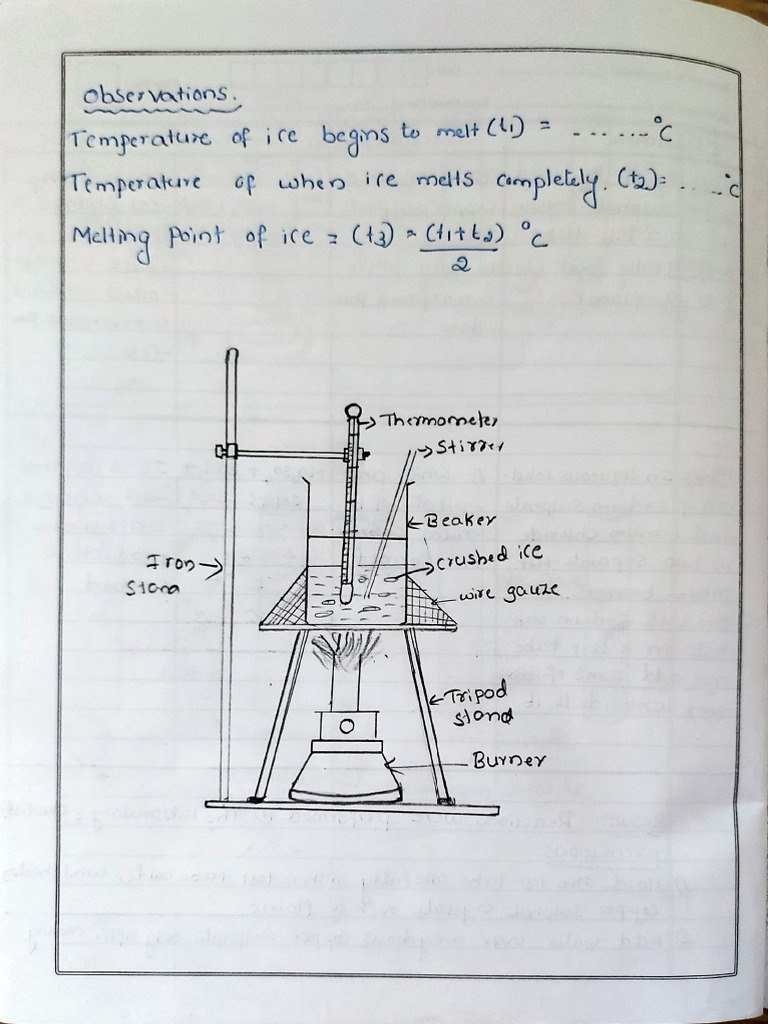 Observations.
Temperature of ice begins to melt (t1) = ....... °C
Temperature of when ice melts completely. (t2)= .... °C
Melting Point of ice = (t3) = (t1+t2) °C
2
Thermometer
Stirrer
Beaker
Crushed ice
Iron
Stand
wire gauze
Tripod
stand
Burner